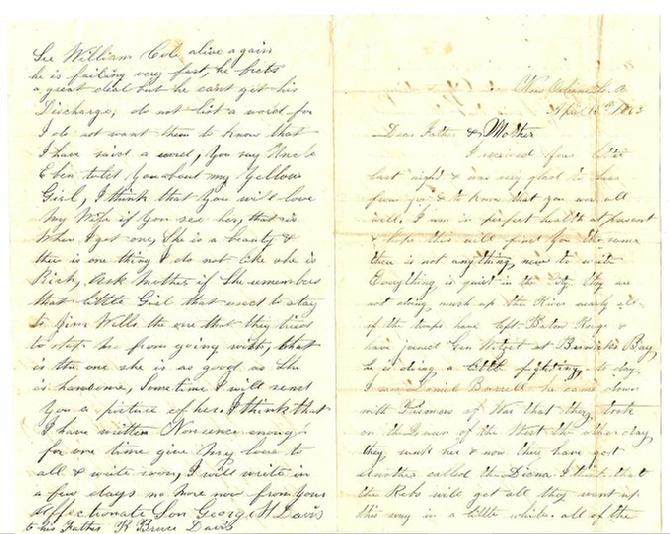 New Orleans La
April 13th 1863
Dear Father & Mother
I received your letter
last night & was very glad to hear
from you & to know that you were all
well. I am in perfect health at present
& hope this will find you the same
there is not anything new to write
Everything is quiet in the City they are
not doing much up the River nearly all
of the troops have left Baton Rouge &
have joined Gen Witzel at Berwicks Bay
he is doing a little fighting to day.
I saw Daniel Burrell he came down
with Prisoners of War that they took
on the Queen of the West the other day
they sunk her & now they have got
another called the Diana I think that
the Rebs will get all they want up
this way in a little while. all of the
See William Cole alive again
he is failing very fast, he frets
a great deal but he cant get his
Discharge, do not lisp a word for
I do not want them to know that
I have said a word, You say Uncle
Eben told You about my Yellow
Girl, I think that You will love
my Wife if You see her, that is
When I get one, She is a beauty &
there is one thing I do not like she is
Rich, Ask Mother if She remembers
that little Girl that used to stay
to Jim Wills the one that they tried
to stop me from going with, that
is the one she is as good as She
is handsome, Sometime I will send
You a picture of her. I think that
I have written Nonsence enough
for one time give my love to
all & write soon, I will write in
a few days no more now from Your
Affectionate Son George H Davis
to his Father K Bruce Davis